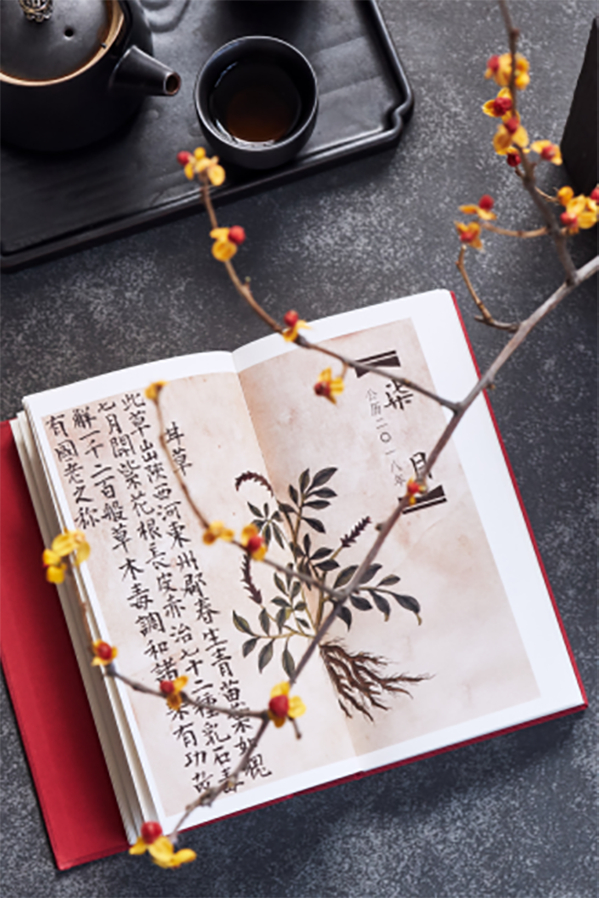 柒月
公历二〇一八年
甘草
此草出陝西河東州郡春生青苗葉如槐
七月開紫花根長皮赤治七十二種乳石毒
解一千二百般草木毒調和諸藥有功故
有國老之称